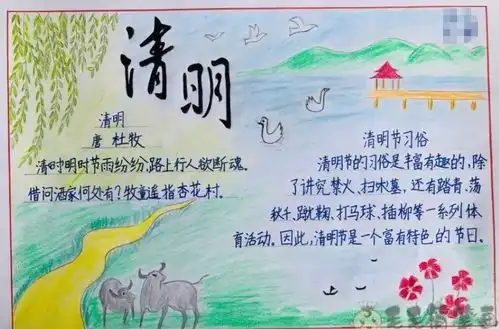 清明
清明
唐 杜牧
清时明时节雨纷纷,路上行人欲断魂。
借问酒家何处有?牧童遥指杏花村。
清明节习俗
清明节的习俗是丰富有趣的,除
了讲究禁火、扫水墓,还有踏青、荡
秋千、蹴鞠、打马球、插柳等一系列体
育活动。因此,清明节是一个富有特色的节日。